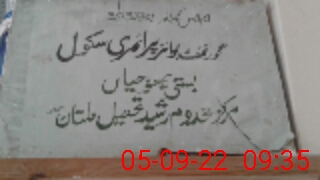 گورنمنٹ بوائز پرائمری سکول
بستی
مرکز مخدوم رشید تحصیل ملتان
05-09-22 09:35